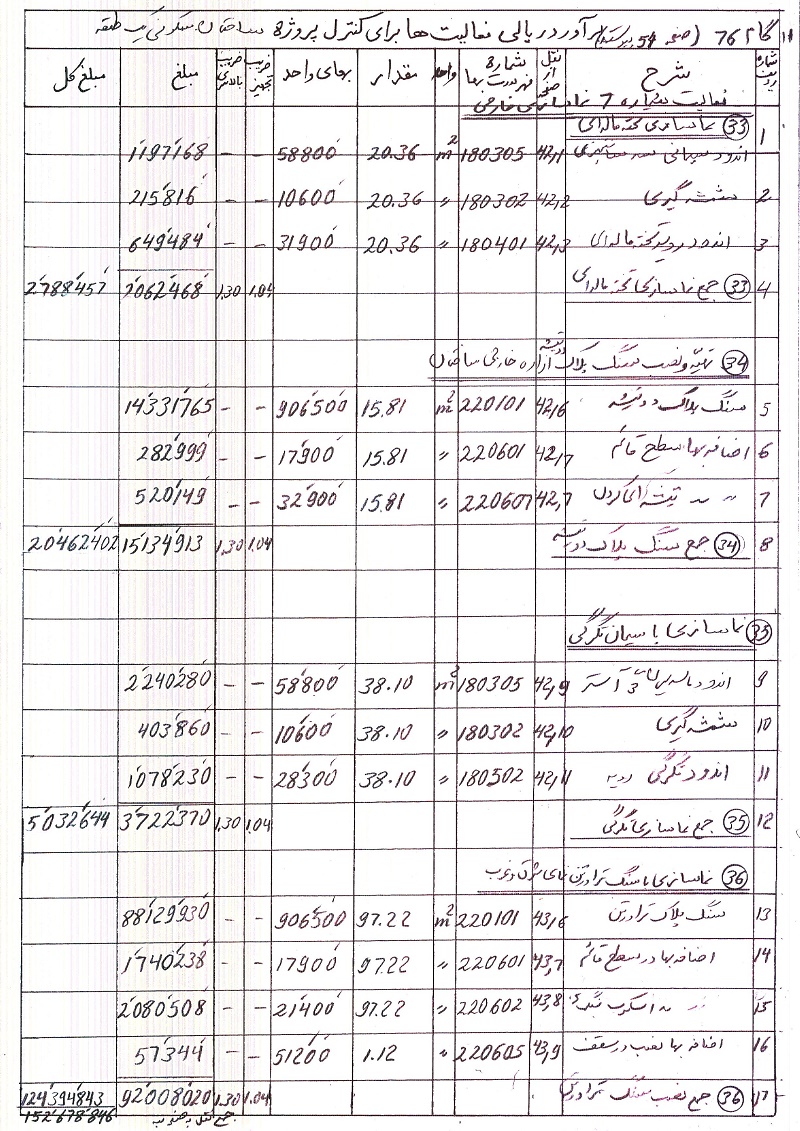 گام 76 (صفحه 54) برآورد ریالی فعالیت ها برای کنترل پروژه ساختمان مسکونی یک طبقه
شماره ردیف شرح نقل از صفحه شماره فهرست بها واحد مقدار بهای واحد ضریب تجهیز ضریب بالاسری مبلغ مبلغ کل
فعالیت شماره 7 نماسازی خارجی
33 نماسازی تخته ماله ای
1 اندود سیمانی 42,1 180305 m² 20.36 58800 - - 1197168
2 شمشه گیری 42,2 180302 〃 20.36 10600 - - 215816
3 اندود رویه تخته ماله ای 42,3 180401 〃 20.36 31900 - - 649484
4 33 جمع نماسازی تخته ماله ای 1.04 1.30 2062468 2788457
34 تهیه و نصب سنگ پلاک دو تیشه ازاره خارجی ساختمان
5 سنگ پلاک دو تیشه 42,6 220101 m² 15.81 906500 - - 14331765
6 اضافه بها سطح قائم 42,7 220601 〃 15.81 17900 - - 282999
7 〃 〃 تیشه ای کردن 42,7 220607 〃 15.81 32900 - - 520149
8 34 جمع سنگ پلاک دو تیشه 1.04 1.30 15134913 20462402
35 نماسازی با سیمان تگرگی
9 اندود 3 آستر 42,9 180305 m² 38.10 58800 - - 2240280
10 شمشه گیری 42,10 180302 〃 38.10 10600 - - 403860
11 اندود تگرگی رویه 42,11 180502 〃 38.10 28300 - - 1078230
12 35 جمع نماسازی تگرگی 1.04 1.30 3722370 5032644
36 نماسازی با سنگ تراورتن نمای شرق و غرب
13 سنگ پلاک تراورتن 43,6 220101 m² 97.22 906500 - - 88129930
14 اضافه بها در سطح قائم 43,7 220601 〃 97.22 17900 - - 1740238
15 〃 〃 اسکوپ سنگ 43,8 220602 〃 97.22 21400 - - 2080508
16 اضافه بها نصب در سقف 43,9 220605 〃 1.12 51200 - - 57344
17 36 جمع نصب سنگ تراورتن 1.04 1.30 92008020 124394843
جمع نقل به صفحه 152678846